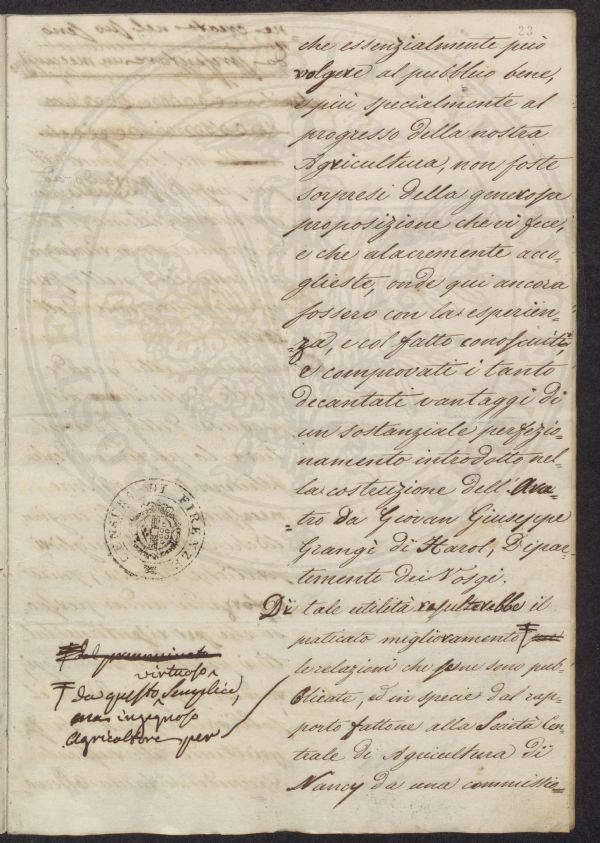 23
che essenzialmente può
volgere al pubblico bene,
e più specialmente al
progresso della nostra
Agricultura, non foste
sorpresi della generosa
proposizione che vi fece,
e che alacremente acco-
glieste, onde qui ancora
fossero con la esperien-
za, e col fatto conosciuti,
e comprovati i tanto
decantati vantaggi di
un sostanziale perfezio-
namento introdotto nel-
la costruzione dell'Ara-
tro da Giovan Giuseppe
Grangè di Harol, Dipar-
temente dei Vosgi.
Di tale utilità resulterebbe il
praticato miglioramento
le relazioni che se ne sono pub-
blicate, ed in specie dal rap-
porto fattone alla Società Cen-
trale di Agricultura di
Nancy da una commissio-
CENSURA DI FIRENZE
del prenominato
virtuoso
da questo semplice,
ma ingegnoso
Agricoltore per